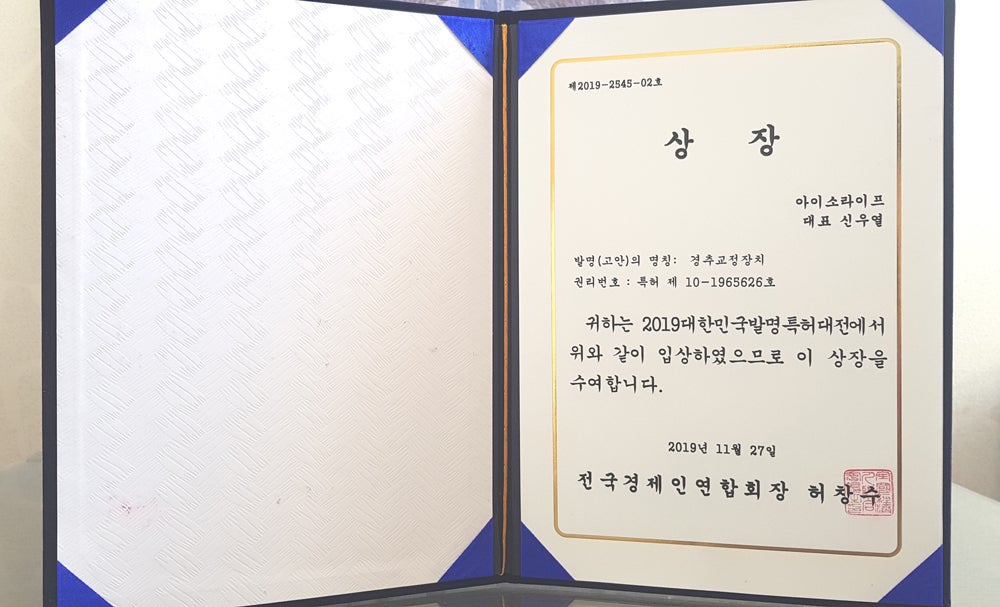 제2019-2545-02호
상 장
아이소라이프
대표 신우열
발명(고안)의 명칭: 경추교정장치
권리번호 : 특허 제 10-1965626호
귀하는 2019대한민국발명특허대전에서
위와 같이 입상하였으므로 이 상장을
수여합니다.
2019년 11월 27일
전국경제인연합회장 허창수